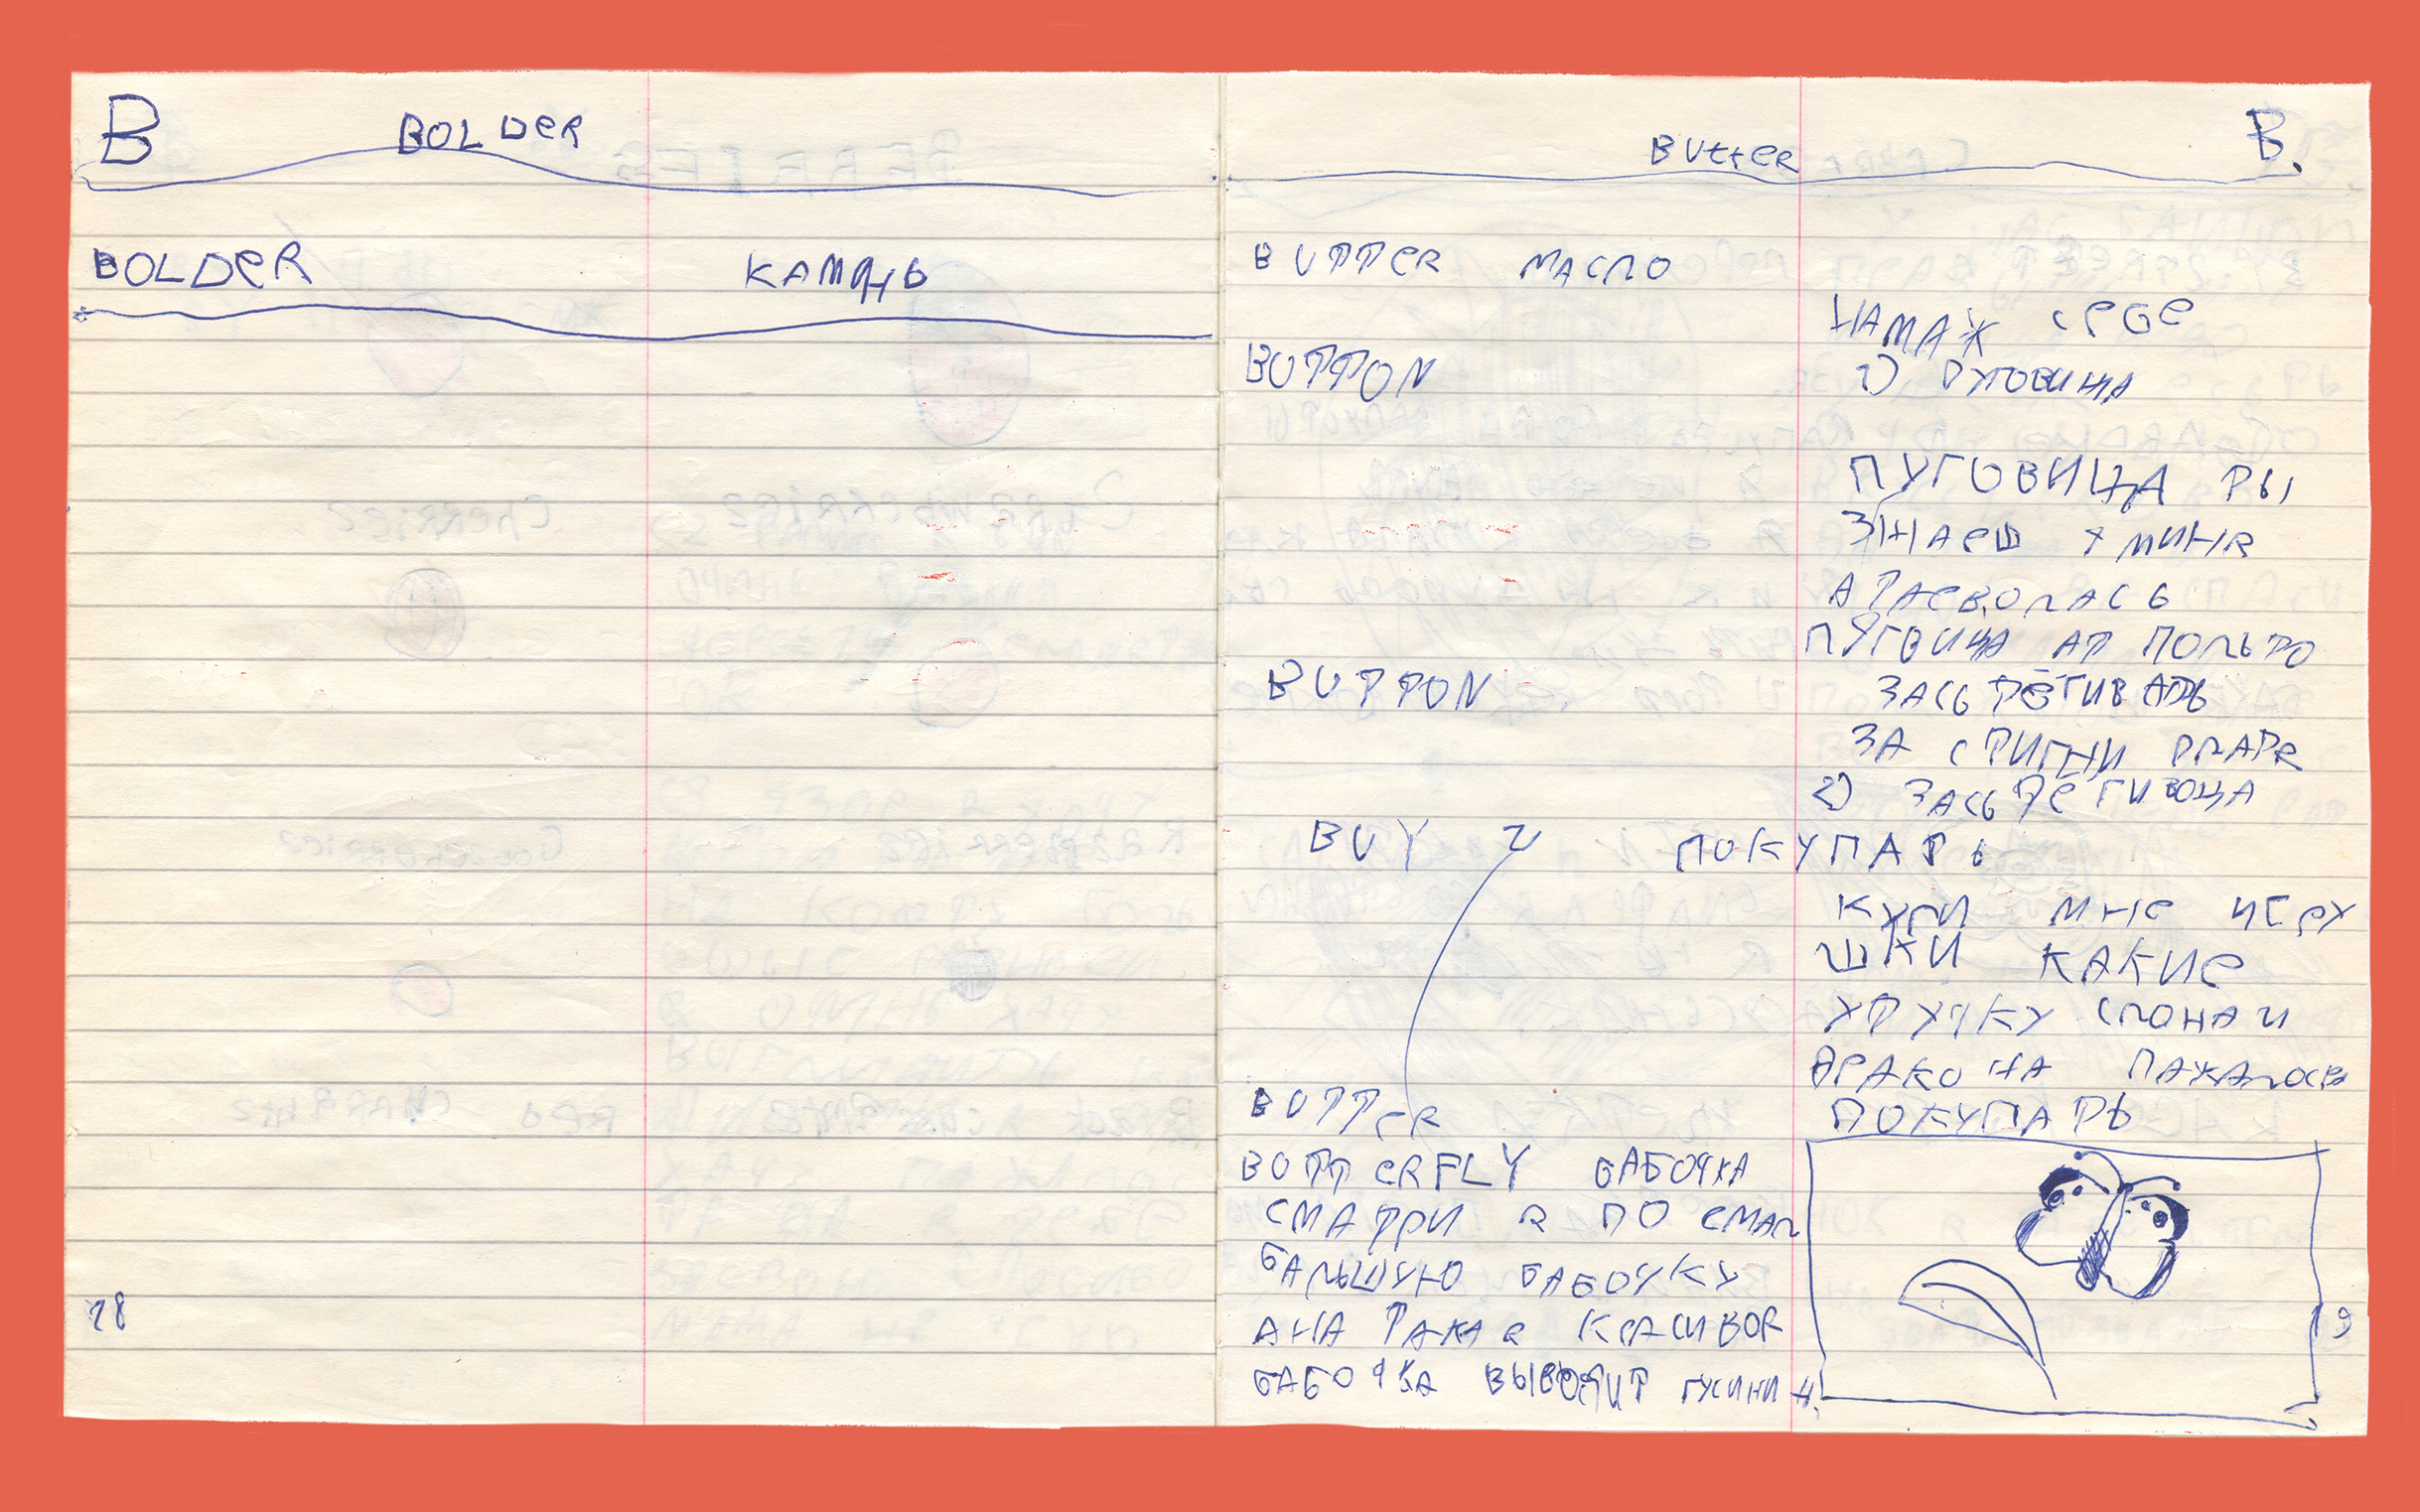 B BOLDER
BOLDER КАМЯНЬ
18
Butter B.
BUTTER МАСЛО
НАМАЖ СЕБЕ
BUTTON
1) ПУГОВИЦА
ПУГОВИЦА ТЫ
ЗНАЕШ У МИНЯ
АТАРВОЛАСЬ
ПУГВИЦА АТ ПОЛЬТО
BUTTON ЗАСЬТЁГИВАТЬ
ЗАСТИГНИ ПЛАТЯ
2) ЗАСЬТЕГИВОЦА
BUY ПОКУПАТЬ
КУПИ МНЕ ИГРУ
ШКИ КАКИЕ
УТУЧКУ СЛОНА И
ДРАКОНА ПАЖАЛОСТ
ПОКУПАТЬ
BUTTER
BUTTERFLY БАБОЧКА
СМАТРИ Я ПОЕМАЛ
БАЛЬШУЮ БАБОЧКУ
АНА ТАКАЯ КРАСИВОЯ
БАБОЧКА ВЫВОДИТ ГУСИНИЦ
19